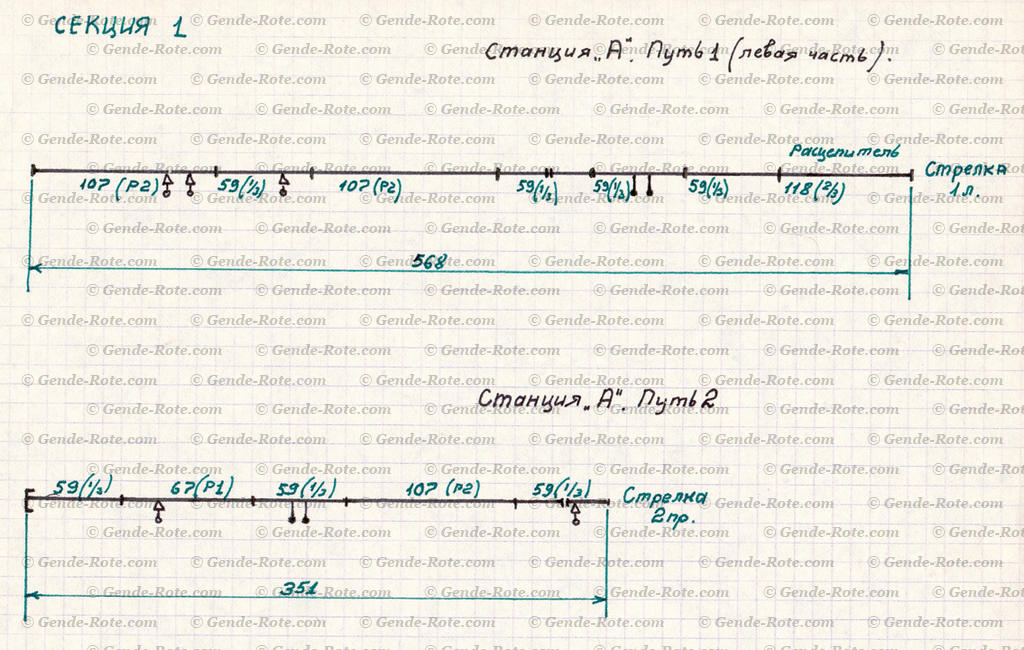 СЕКЦИЯ 1
Станция „А". Путь 1 (левая часть).
Расцепитель
107 (Р2) 59(1/3) 107 (Р2) 59(1/3) 59(1/3) 59(1/3) 118(2/3)
Стрелка
1 л.
568
Станция „А". Путь 2
59(1/3) 67(Р1) 59(1/3) 107 (Р2) 59(1/3)
Стрелка
2 пр.
351
© Gende-Rote.com